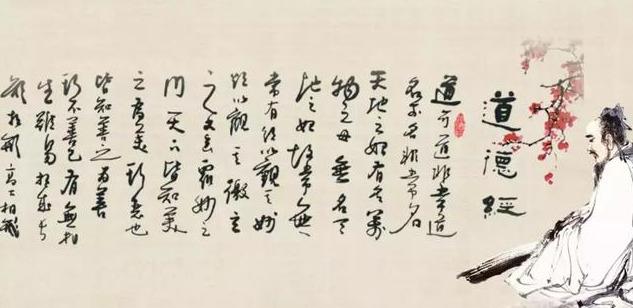 道德經
道可道非常道
名可名非常名
天地之始有名萬
物之母無名天
地之始故常無
常有欲以觀其妙
欲以觀其徼玄
之又玄眾妙之
門天下皆知美
之為美斯惡也
皆知善之為善
斯不善已有無相
生難易相成長
短相形高下相